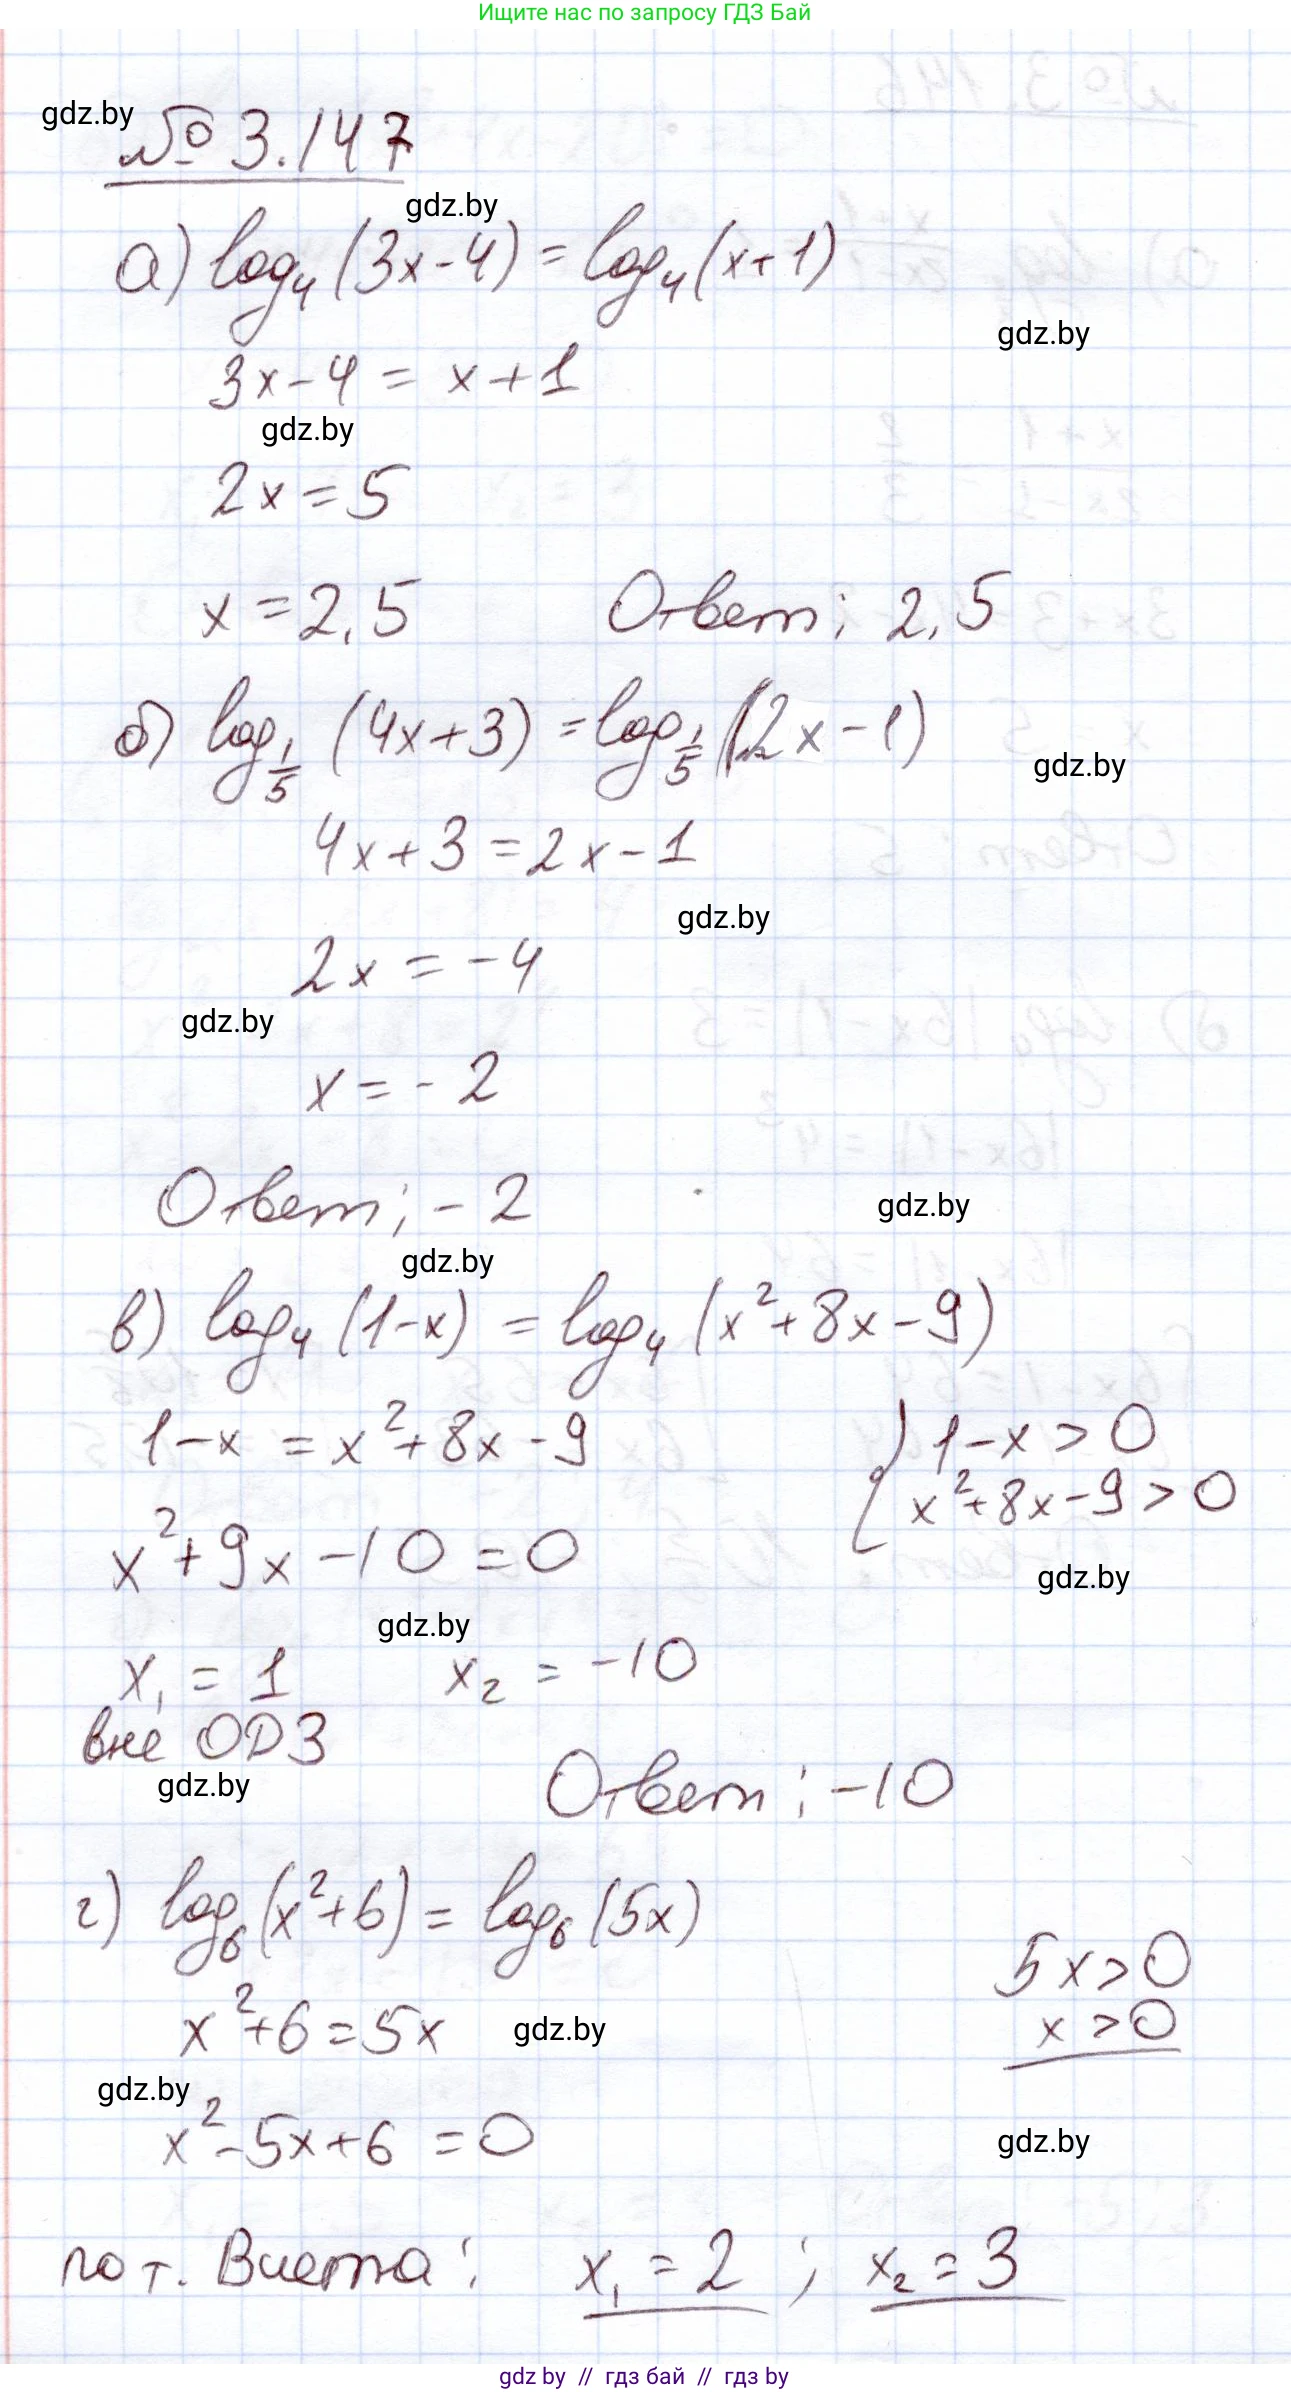 Ищите нас по запросу ГДЗ Бай
gdz.by
№ 3.147
gdz.by
а) log₄ (3x-4) = log₄ (x+1)
gdz.by
3x-4 = x+1
gdz.by
2x = 5
x = 2,5 Ответ: 2,5
б) log_{1/5} (4x+3) = log_{1/5} (2x-1)
gdz.by
4x+3 = 2x-1
gdz.by
2x = -4
gdz.by
x = -2
Ответ: -2
gdz.by
gdz.by
в) log₄ (1-x) = log₄ (x²+8x-9)
1-x = x²+8x-9 { 1-x > 0
x²+8x-9 > 0
x²+9x-10 = 0
gdz.by
gdz.by
x₁ = 1 x₂ = -10
вне ОДЗ
gdz.by
Ответ: -10
г) log₆ (x²+6) = log₆ (5x)
5x > 0
x²+6 = 5x gdz.by x > 0
gdz.by
x²-5x+6 = 0
gdz.by
по т. Виета: x₁ = 2 ; x₂ = 3
gdz by // гдз бай // гдз by